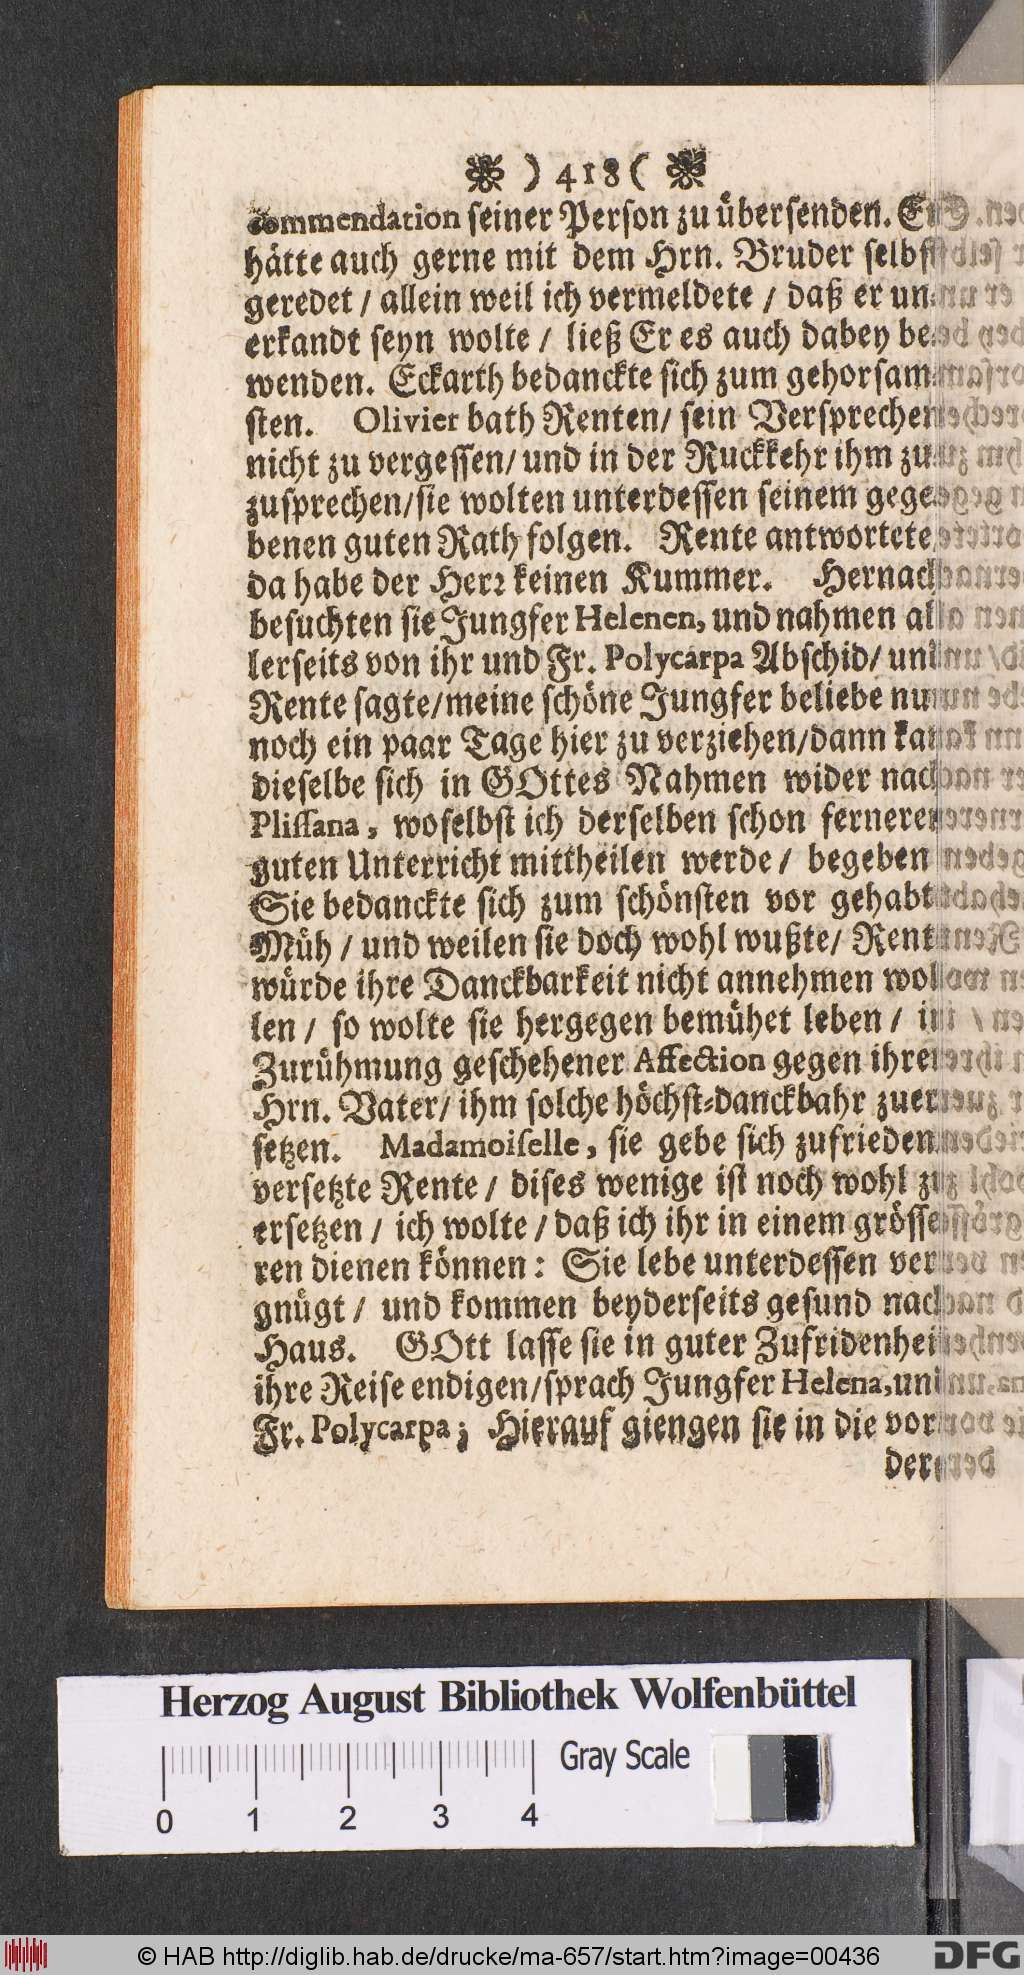 ) 418 (
commendation seiner Person zu übersenden. Er
hätte auch gerne mit dem Hrn. Bruder selbst
geredet / allein weil ich vermeldete / daß er un-
erkandt seyn wolte / ließ Er es auch dabey be-
wenden. Eckarth bedanckte sich zum gehorsam-
sten. Olivier bath Renten / sein Versprechen
nicht zu vergessen / und in der Ruckkehr ihm zu-
zusprechen / sie wolten unterdessen seinem gege-
benen guten Rath folgen. Rente antwortete /
da habe der Herr keinen Kummer. Hernach
besuchten sie Jungfer Helenen, und nahmen al-
lerseits von ihr und Fr. Polycarpa Abschid / und
Rente sagte / meine schöne Jungfer beliebe nur
noch ein paar Tage hier zu verziehen / dann kan
dieselbe sich in GOttes Nahmen wider nach
Plissana, woselbst ich derselben schon ferneren
guten Unterricht mittheilen werde / begeben
Sie bedanckte sich zum schönsten vor gehabte
Müh / und weilen sie doch wohl wußte / Rente
würde ihre Danckbarkeit nicht annehmen wol-
len / so wolte sie hergegen bemühet leben / in
Zurühmung geschehener Affection gegen ihren
Hrn. Vater / ihm solche höchst-danckbahr zuer-
setzen. Madamoiselle, sie gebe sich zufrieden
versetzte Rente / dises wenige ist noch wohl zu
ersetzen / ich wolte / daß ich ihr in einem grösse-
ren dienen können: Sie lebe unterdessen ver-
gnügt / und kommen beyderseits gesund nach
Haus. GOtt lasse sie in guter Zufridenheit
ihre Reise endigen / sprach Jungfer Helena, und
Fr. Polycarpa; Hierauf giengen sie in die vor-
dere
Herzog August Bibliothek Wolfenbüttel
Gray Scale
0 1 2 3 4
© HAB http://diglib.hab.de/drucke/ma-657/start.htm?image=00436
DFG